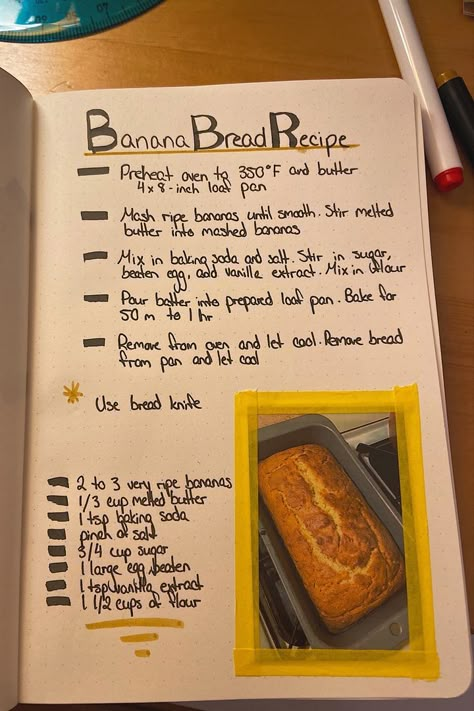 Banana Bread Recipe
Preheat oven to 350°F and butter
4x8-inch loaf pan
Mash ripe bananas until smooth. Stir melted
butter into mashed bananas
Mix in baking soda and salt. Stir in sugar,
beaten egg, and vanilla extract. Mix in flour
Pour batter into prepared loaf pan. Bake for
50 m to 1 hr
Remove from oven and let cool. Remove bread
from pan and let cool
Use bread knife
2 to 3 very ripe bananas
1/3 cup melted butter
1 tsp baking soda
pinch of salt
3/4 cup sugar
1 large egg, beaten
1 tsp vanilla extract
1 1/2 cups of flour